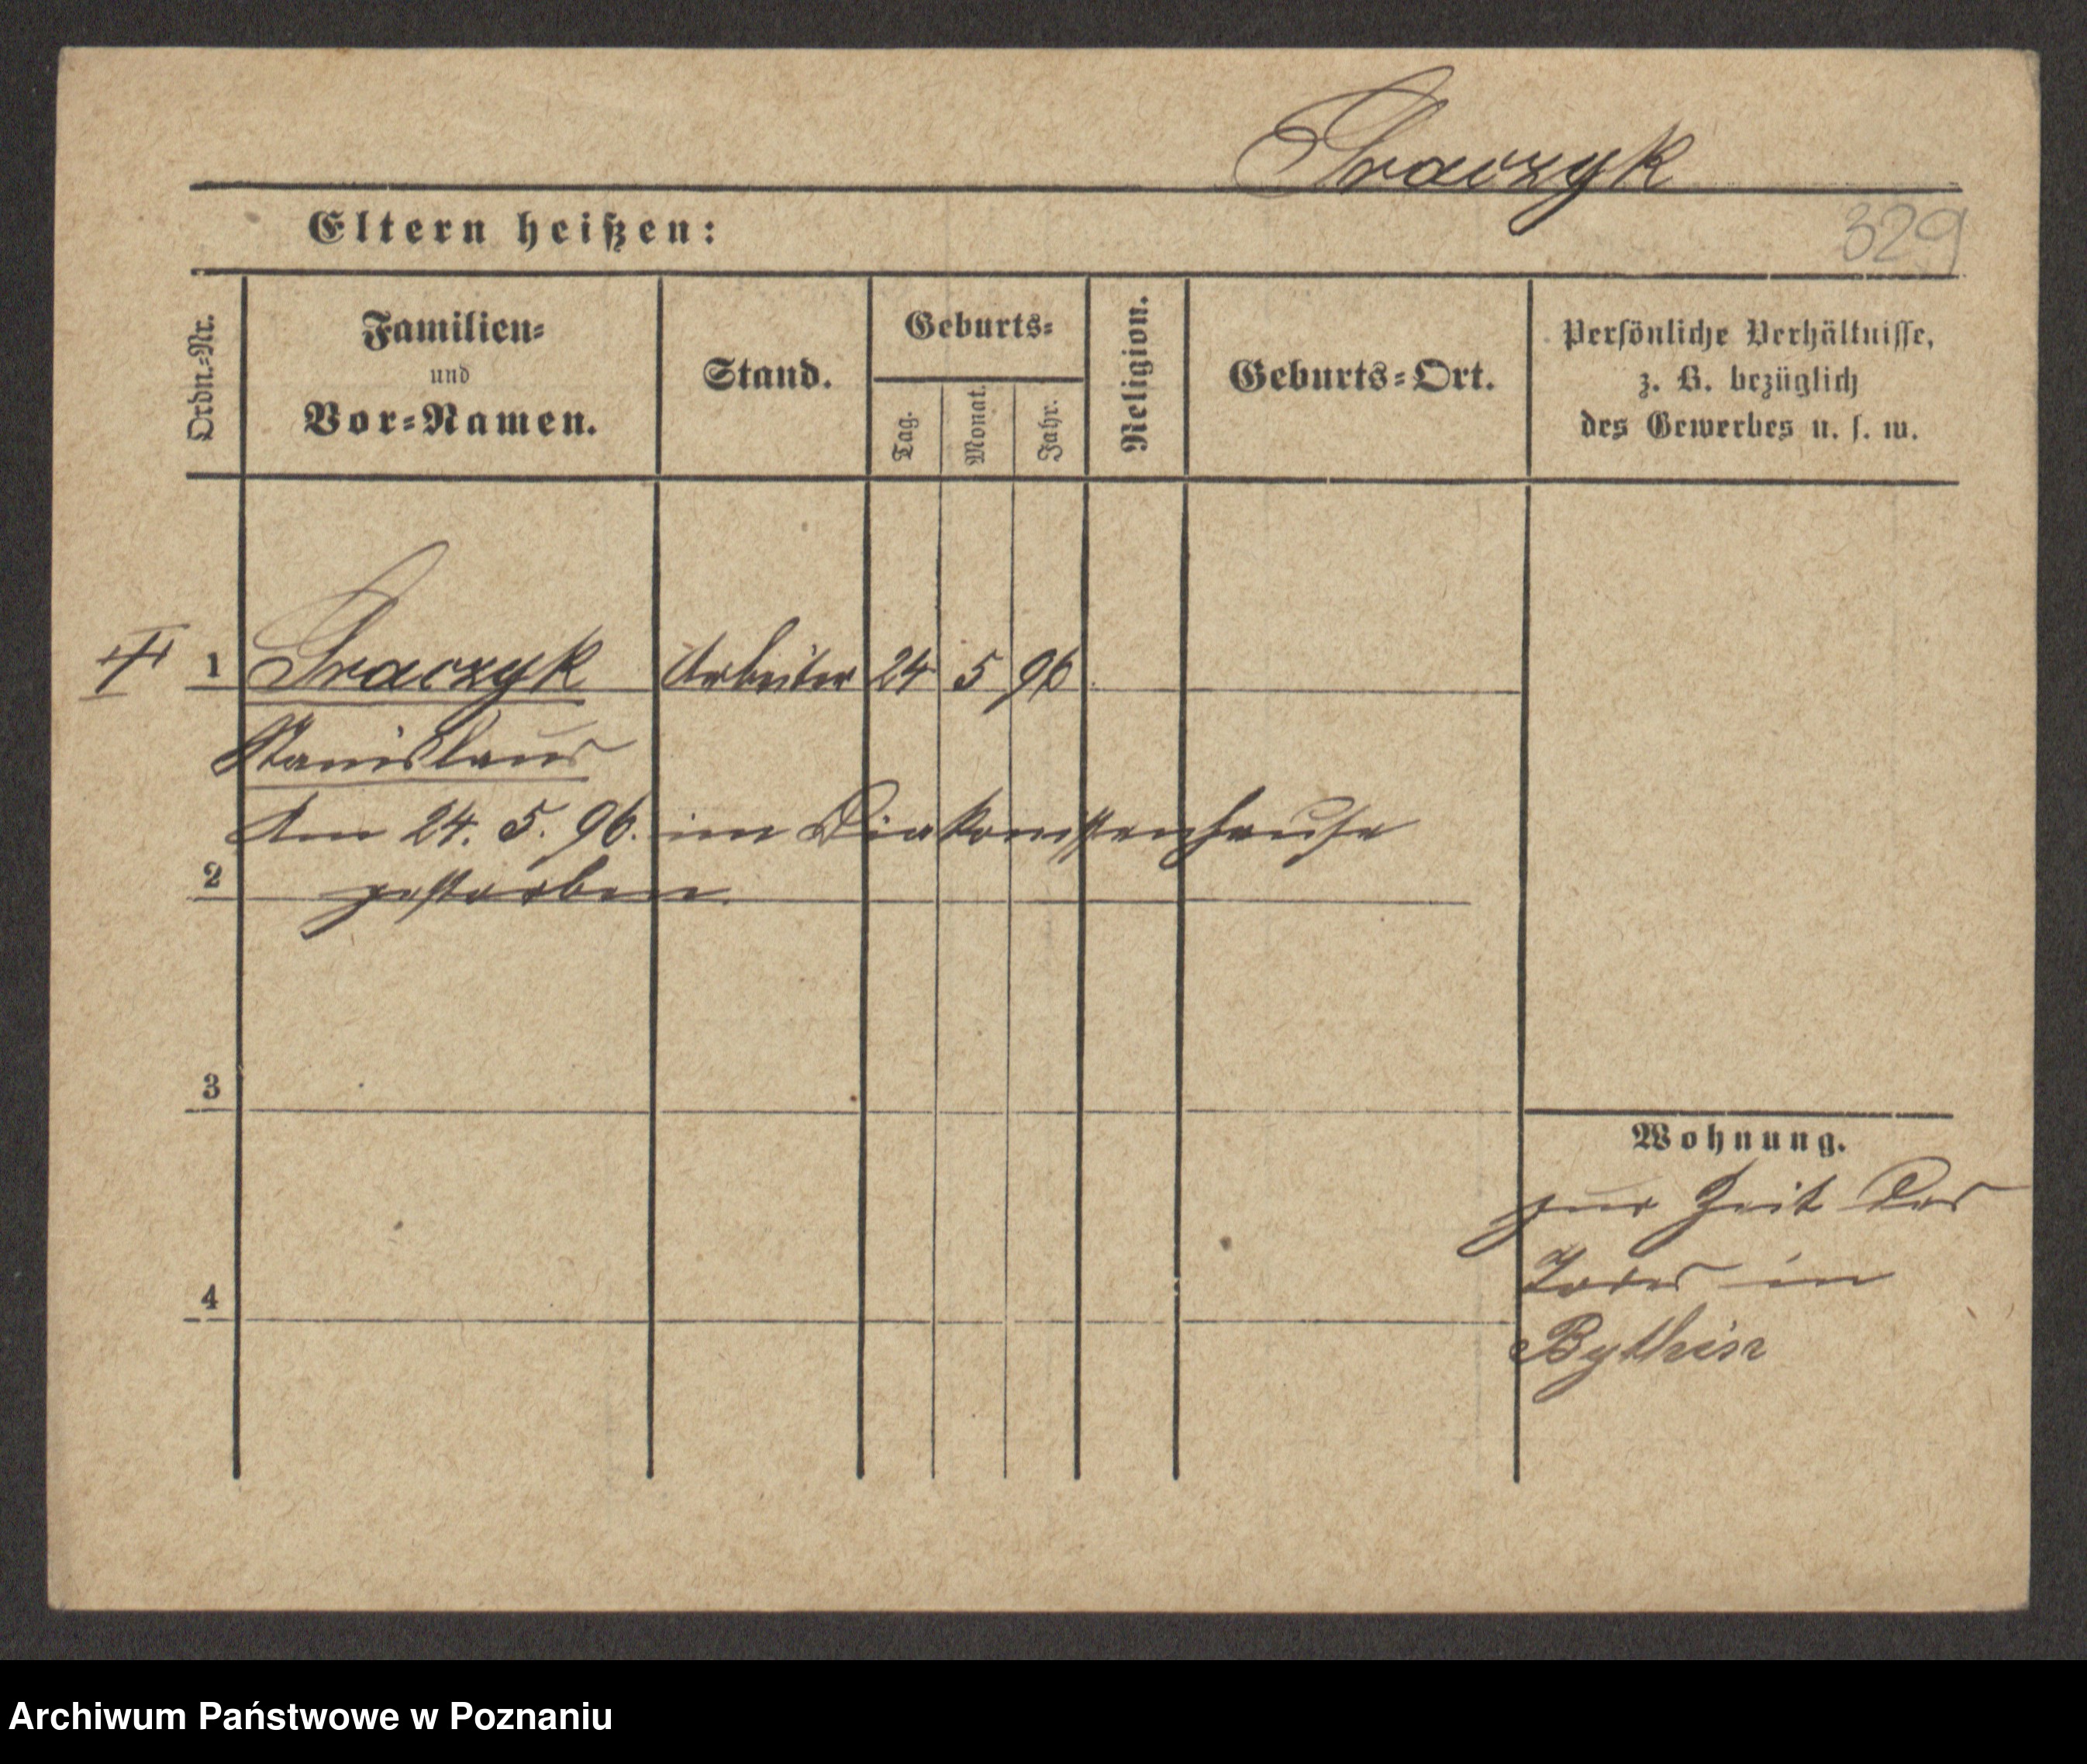 Traczyk
329
Eltern heißen:
Ordn.-Nr.
Familien-
und
Vor-Namen.
Stand.
Geburts-
Tag.
Monat.
Jahr.
Religion.
Geburts-Ort.
Persönliche Verhältnisse,
z. B. bezüglich
des Gewerbes u. s. w.
1 Traczyk Arbeiter 24 5 96
Stanislaus
Am 24. 5. 96. im Diakonissenhause
2 gestorben.
3
4
Wohnung.
zur Zeit des
Todes in
Bythin
Archiwum Państwowe w Poznaniu